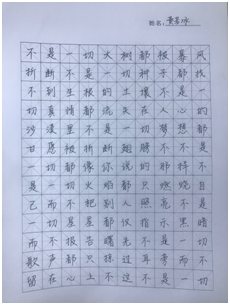 姓名：黄善咏
不是一切火树都被暴风
折断不是一切种子都找
不到生根的土壤不是一
切真情都流失在人心的
沙漠里不是一切梦想都
甘愿被折断翅膀不不是
一切都像你说的那样不
是一切火焰都只燃烧自
己而不把别人照亮不是
一切星星都仅指示黑暗
而不报告曙光不是一切
歌声都只掠过耳旁而不
留在心上不这不是一切